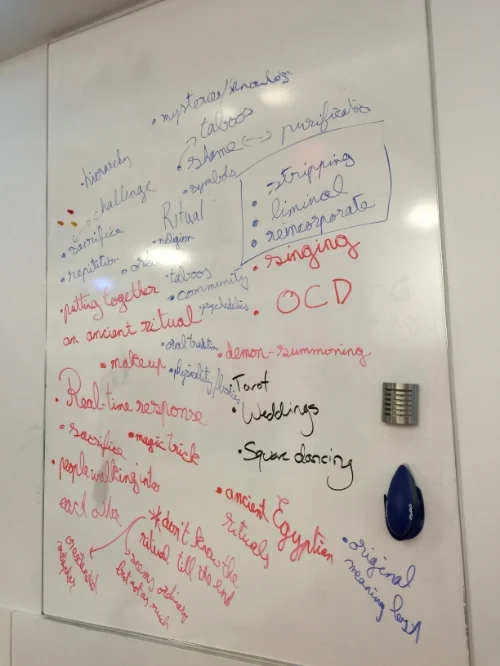 • mysteries/
taboos
• shame <--> purification
• hierarchy
challenge
• symbols
• stripping
• liminal
• reincorporate
Ritual
• sacrifice
• religion
• repetition
• taboos
• community
psychedelics
• singing
• OCD
• putting together
an ancient ritual
• oral tradition
• makeup
• physicality/bodies
• demon-summoning
• Tarot
• Weddings
• Square dancing
• Real-time response
• sacrifice
• magic trick
• people walking into
each other
• ancient Egyptian
rituals
* don't know the
ritual till the end
seems ordinary
metaphor
• original
meaning lost